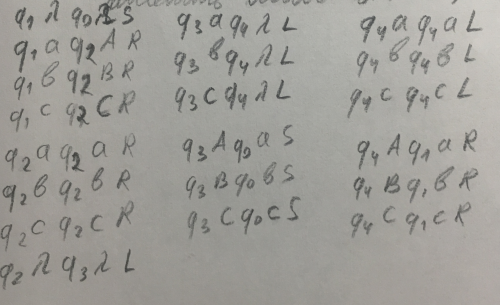 q₁ λ q₀ λ S
q₁ a q₂ A R
q₁ в q₂ B R
q₁ c q₂ C R
q₂ a q₂ a R
q₂ в q₂ в R
q₂ c q₂ c R
q₂ λ q₃ λ L
q₃ a q₄ λ L
q₃ в q₄ λ L
q₃ c q₄ λ L
q₃ A q₀ a S
q₃ B q₀ в S
q₃ C q₀ c S
q₄ a q₄ a L
q₄ в q₄ в L
q₄ c q₄ c L
q₄ A q₁ a R
q₄ B q₁ в R
q₄ C q₁ c R